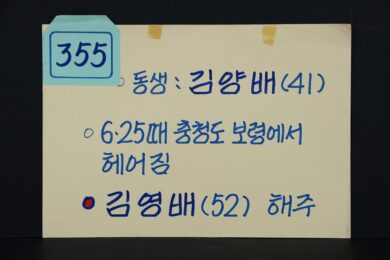 355
○ 동생 : 김양배(41)
○ 6·25때 충청도 보령에서
헤어짐
● 김영배(52) 해주